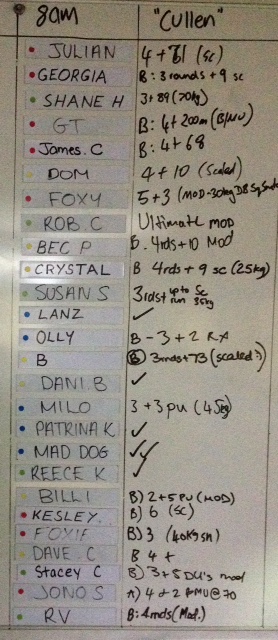 8am "Cullen"
JULIAN 4 + 81 (SC)
GEORGIA B: 3 rounds + 9 sc
SHANE H 3 + 89 (70kg)
GT B: 4 + 200m (B/MU)
James. C B: 4 + 68
DOM 4 + 10 (Scaled)
FOXY 5 + 3 (MOD - 30kg DB
ROB. C Ultimate mod
BEC P B. 4rds + 10 Mod
CRYSTAL B 4rds + 9 sc (25kg)
SUSAN S 3rds + up to Sc run 35kg
LANZ ✓
OLLY B - 3 + 2 RX
B B 3rnds + 73 (scaled?)
DANI. B ✓
MILO 3 + 3 pu (45kg)
PATRINA K ✓
MAD DOG ✓
REECE K ✓
BILLI B) 2 + 5 PU (MOD)
KESLEY. B) 6 (SC)
FOXIE B) 3 (40kg sn)
DAVE. C B 4 +
Stacey C B) 3 + 5 DU's mod
JONO S 4 + 2 @ 70
RV B: 4rnds (Mod.)